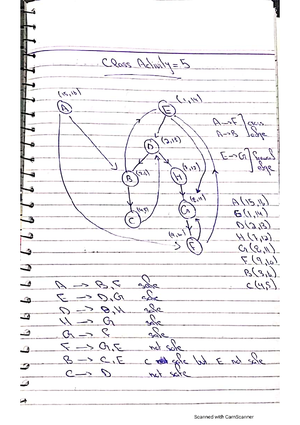 Class Activity = 5
(15,16)
A
E
(1,14)
A → F cross
A → B edge
D
(2,13)
E → G forward
edge
B
(3,6)
H
(7,12)
C
(4,5)
G
(8,11)
F
(9,10)
A (15,16)
E (1,14)
D (2,13)
H (7,12)
G (8,11)
F (9,10)
B (3,6)
C (4,5)
A → B, F safe
E → D, G safe
D → B, H safe
H → G safe
G → F safe
F → G, E not safe
B → C, E C safe but E not safe
C → D not safe
Scanned with CamScanner